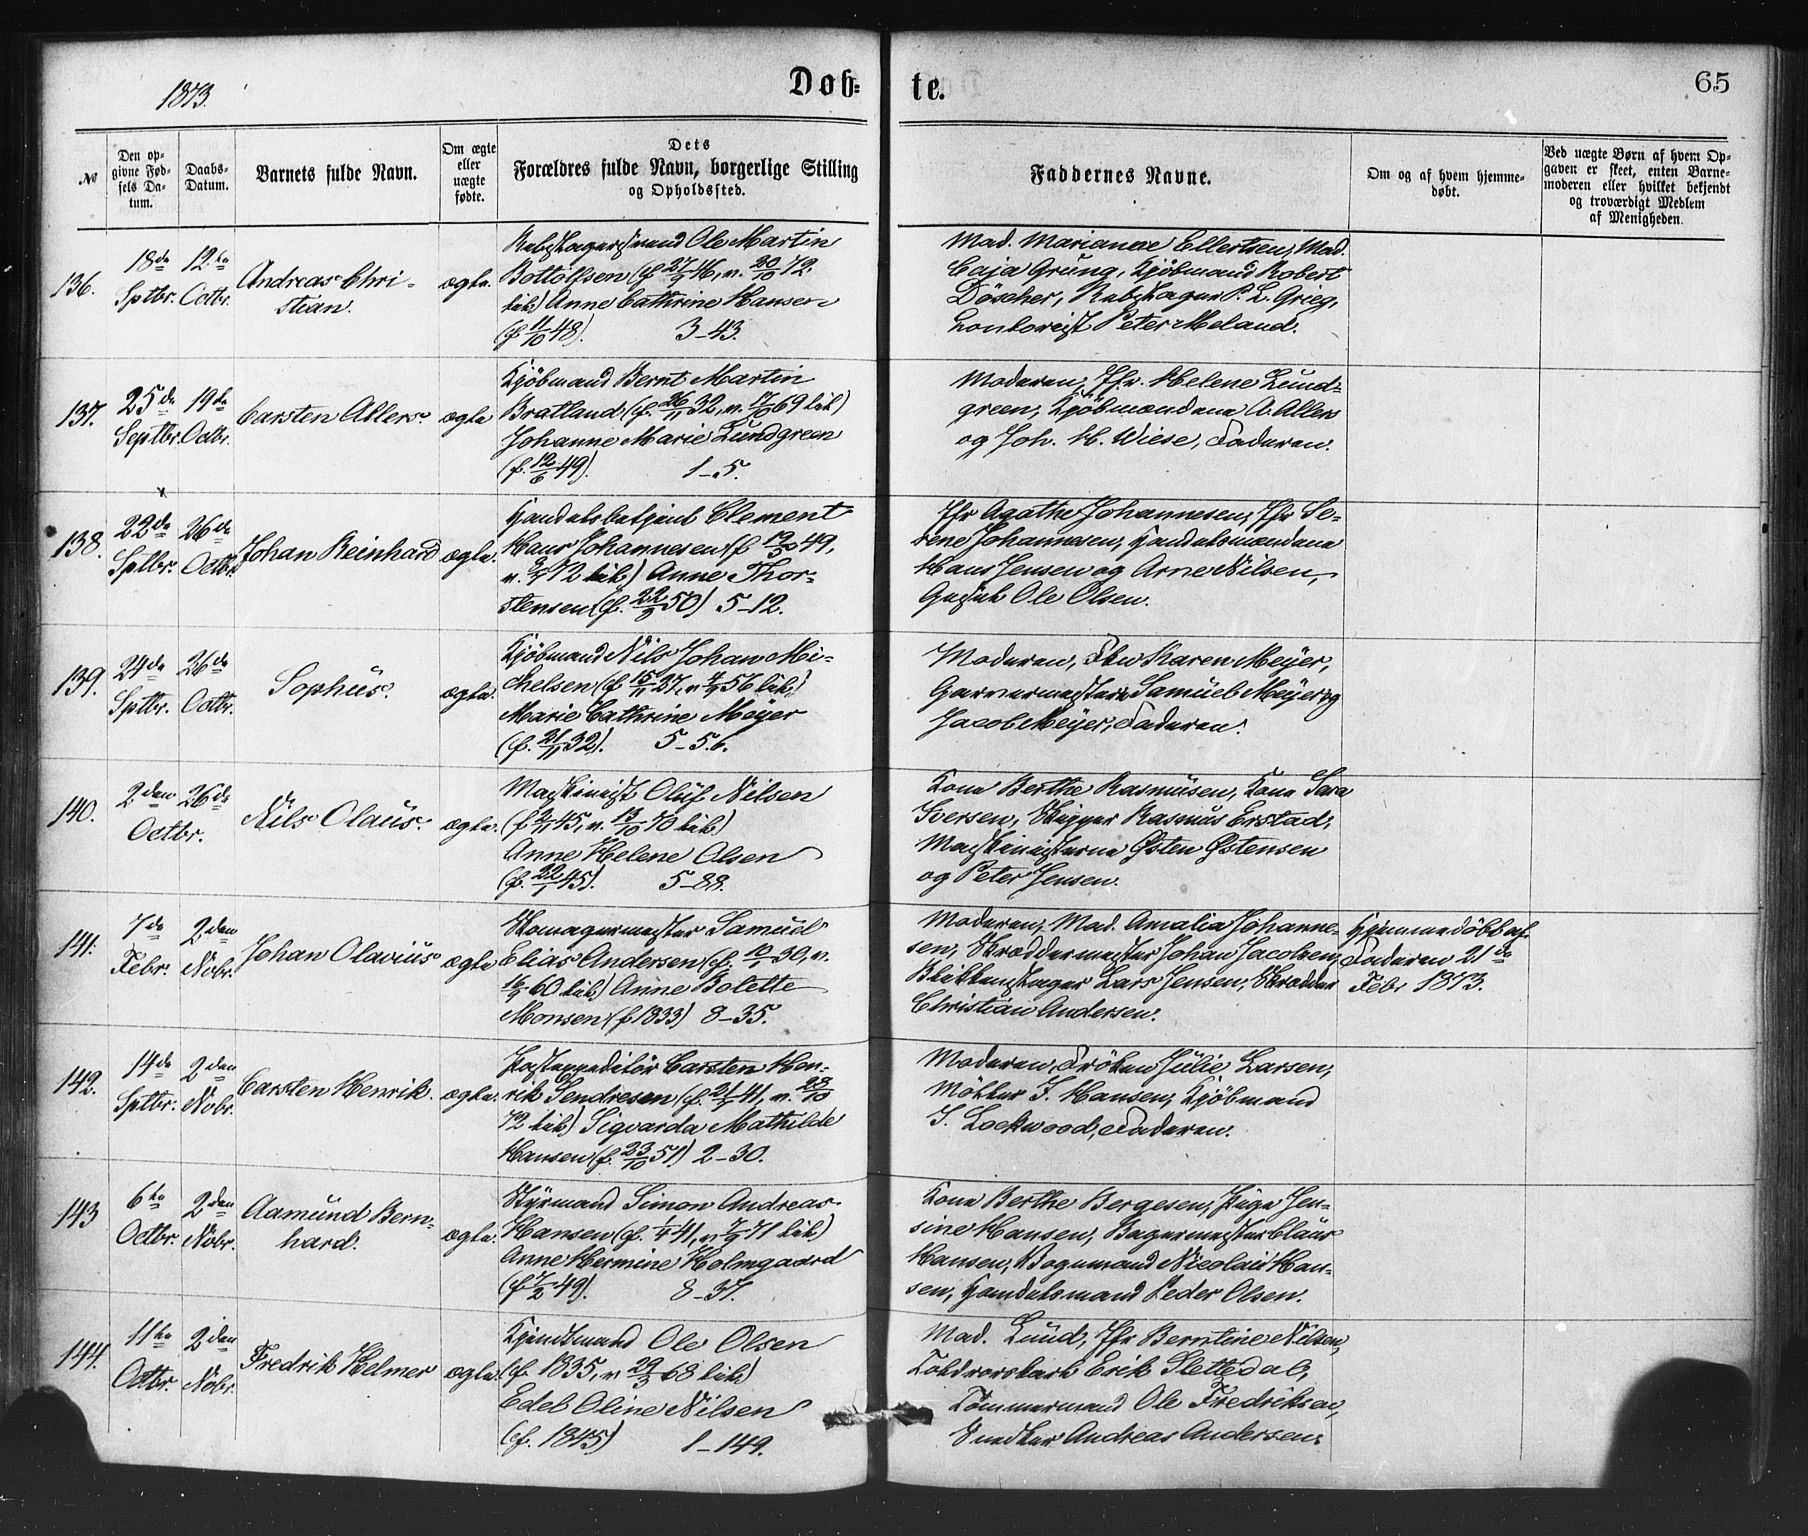 1873.
Døb-
te.
65
№
Den op-
givne Fød-
sels Da-
tum.
Daabs-
Datum.
Barnets fulde Navn.
Om ægte
eller
uægte
fødte.
Dets
Forældres fulde Navn, borgerlige Stilling
og Opholdssted.
Faddernes Navne.
Om og af hvem hjemme-
døbt.
Ved uægte Børn af hvem Op-
gaven er skeet, enten Barne-
moderen eller hvilket bekjendt
og troværdigt Medlem
af Menigheden.
136.
18de
Sptbr.
12te
Octbr.
Andreas Chri-
stian.
ægte.
Rebslagersvend Ole Martin
Bottolfsen (f. 27/9 46, v. 20/10 72.
kirk.) Anne Cathrine Hansen
(f. 11/10 48). 3-43.
Mad. Mariane Ellertsen, Mad.
Caja Grung, Kjøbmand Robert
Döscher, Rebslager P. L. Grieg,
Contorist Peter Meland.
137.
25de
Septbr.
19de
Octbr.
Carsten Allers.
ægte
Kjøbmand Bernt Martin
Bratland (f. 26/11 32, v. 17/10 69 kirk.)
Johanne Marie Lundgreen
(f. 12/6 49). 1-5.
Moderen, Jfr. Helene Lund-
green, Kjøbmændene A. Allers
og Joh. H. Wiese, Faderen.
138.
22de
Sptbr.
26de
Octbr.
Johan Reinhard
ægte.
Handelsbetjent Clement
Hans Johannesen (f. 12/5 49,
72 kirk.) Anne Thor-
stensen (f. 22/2 50) 5-12.
Jfr Agathe Johannesen, Jfr Se-
rene Johannesen, Handelsmændene
Hans Jensen og Arne Nilsen,
Ole Olsen.
139.
24de
Sptbr.
26de
Octbr.
Sophus.
ægte.
Kjøbmand Nils Johan Mi-
chelsen (f. 15/11 27, v. 4/9 56 kirk.)
Marie Cathrine Meyer
(f. 21/11 32). 5-5.b.
Moderen, Karen Meyer,
Garvermestere Samuel Meyer og
Jacob Meyer, Faderen.
140.
2den
Octbr.
26de
Nils Olaus.
ægte.
Maskinist Oluf Nilsen
(f. 2/11 45, v. 13/10 70 kirk.)
Anne Helene Olsen
(f. 22/1 45). 5-88.
Kone Berthe Rasmusen, Kone Sara
Iversen, Skipper Rasmus Erstad,
Maskinisterne Østen Østensen
og Peter Jensen.
141.
7de
Febr.
2den
Nobr.
Johan Olavius
ægte
Skomagermester Samuel
Elias Andersen (f. 10/1 30, v.
60 kirk.) Anne Bolette
Monsen (f. 1833) 8-35.
Moderen, Mad. Amalia Johanne-
sen, Skræddermester Johan Jacobsen,
Blikkenslager Lars Jensen, Skrædder
Christian Andersen.
Hjemmedøbt af
Faderen 21de
Febr 1873.
142.
14de
Sptbr.
2den
Nobr.
Carsten Henrik.
ægte.
Postexpeditør Carsten Hen-
rik Sendresen (f. 21/7 41, v. 28/10
72 kirk.) Sigvarda Mathilde
Hansen (f. 23/10 51) 2-30.
Moderen, Frøken Julie Larsen,
J. Hansen, Kjøbmand
J. Lockwood, Faderen.
143
6te
Octbr.
2den
Nobr.
Aamund Bern-
hard.
ægte.
Styrmand Simon Andreas
Hansen (f. 1/4 41, v. 7/9 71 kirk.)
Anne Hermine Holmgaard
(f. 7/2 49). 8-37.
Kone Berthe Bergesen, Pige Jen-
sine Hansen, Bagermester Claus
Hansen, Vognmand Nicolai Han-
sen, Handelsmand Peder Olsen.
144.
11te
Octbr.
2den
Nobr.
Fredrik Helmer
ægte.
Ole Olsen
(f. 1835, v. 29/3 68 kirk.)
Edel Oline Nilsen
(f. 1845) 1-149.
Mad. Lund, Jfr Berntine Nilsen,
Erik Slettedal,
Tømmermand Ole Fredriksen,
Snedker Andreas Andersen.